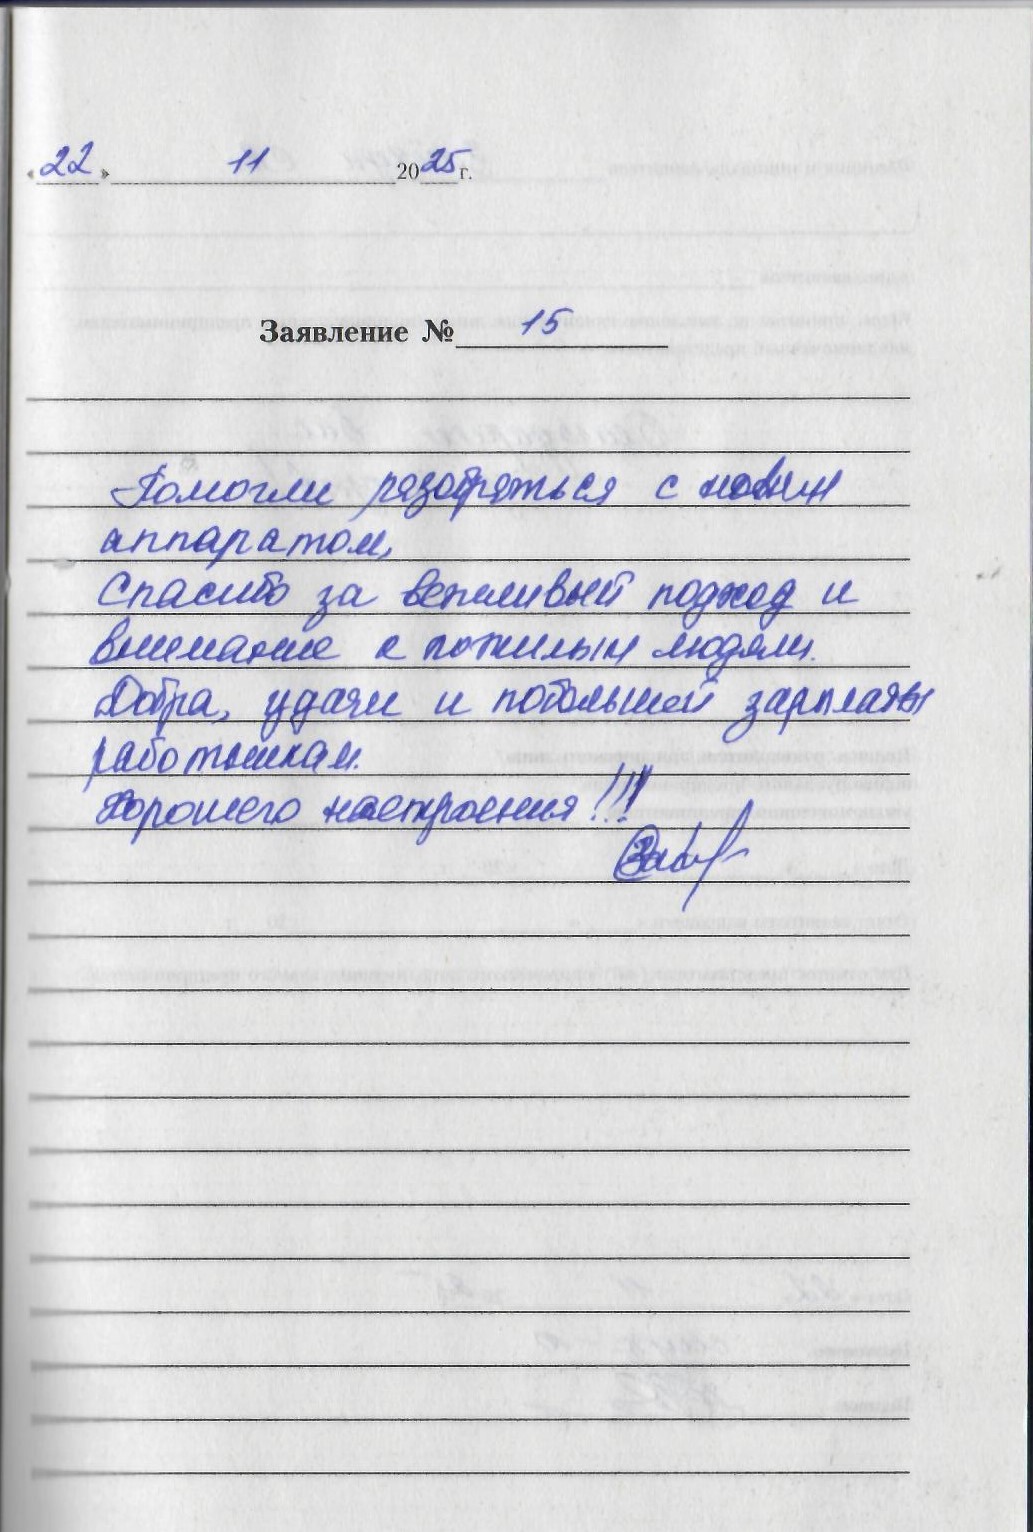 «22» 11 2025 г.
Заявление № 15
Помогли разобраться с новым
аппаратом.
Спасибо за вежливый подход и
внимание к пожилым людям.
Добра, удачи и побольшей зарплаты
работникам.
Хорошего настроения!!!